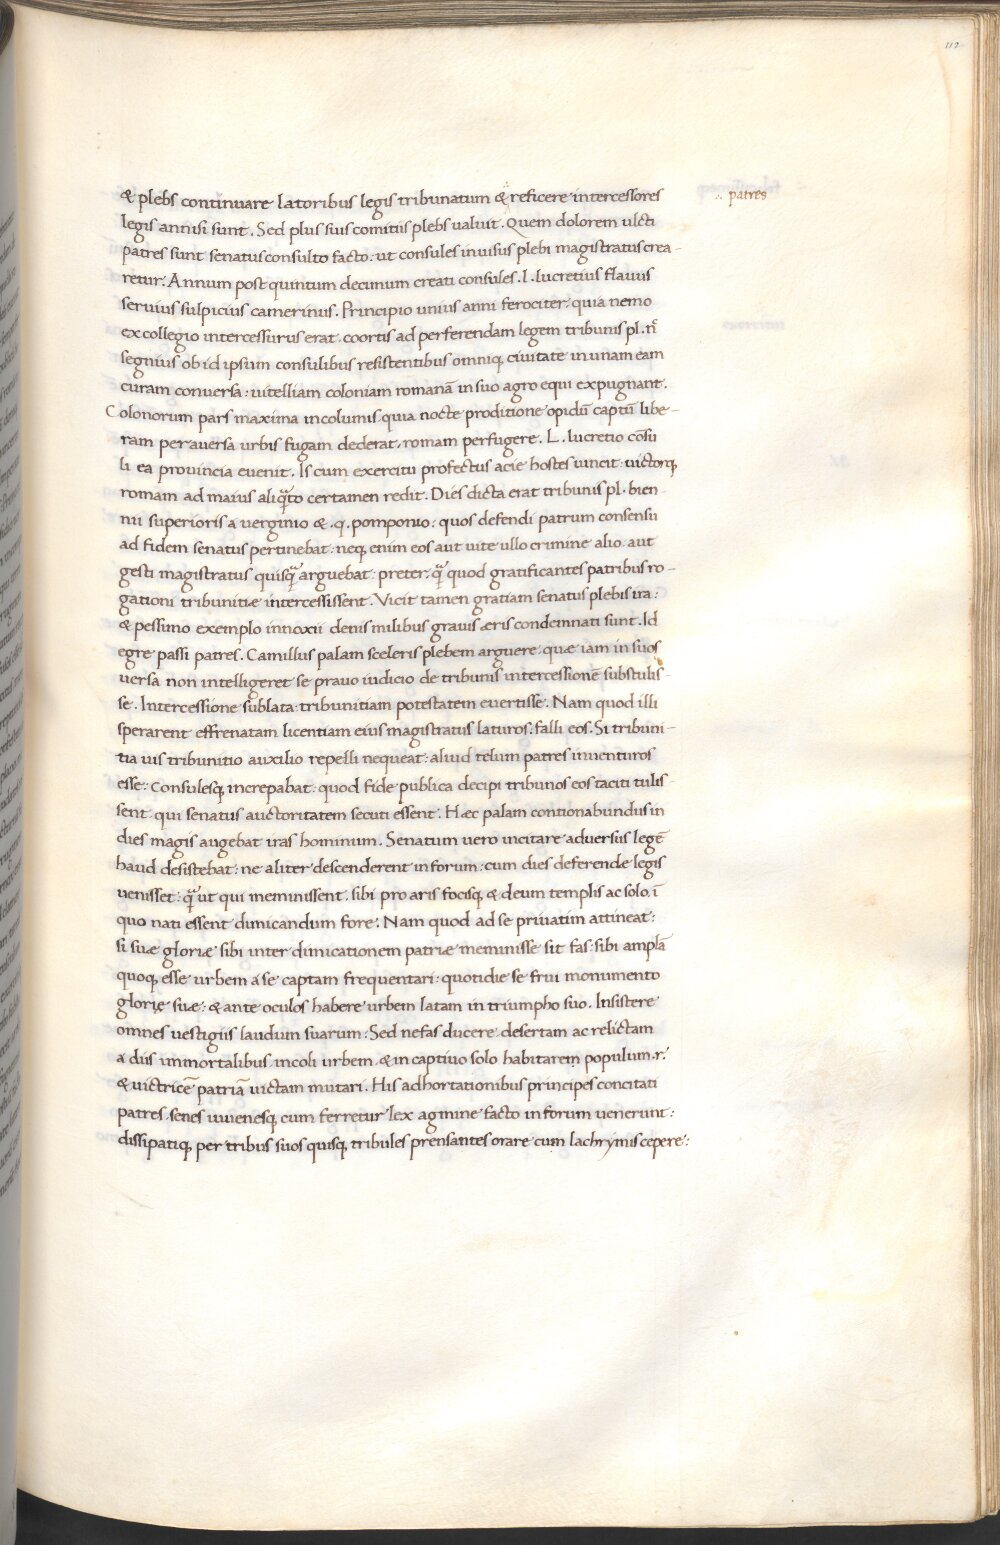 112
& plebs continuare latoribus legis tribunatum & reficere intercessores
∴ patres
legis annisi sunt. Sed plus suis comitiis plebs ualuit. Quem dolorem ulcti
patres sunt senatusconsulto facto: ut consules inuisus plebi magistratus crea-
retur. Annum post quintum decimum creati consules. L. lucretius flauus
seruius sulpicius camerinus. Principio unius anni ferociter: quia nemo
ex collegio intercessurus erat. coortis ad perferendam legem tribunis pl. nͥ
segnius ob id ipsum consulibus resistentibus omniq; ciuitate in unam eam
curam conuersa: uitelliam coloniam romanā in suo agro equi expugnant.
Colonorum pars maxima incolumis. quia nocte proditione opidū captū libe-
ram per auersa urbis fugam dederat. romam perfugere. L. lucretio cōsu
li ea prouincia euenit. Is cum exercitu profectus acie hostes uincit: uictorq;
romam ad maius aliqᷓto certamen redit. Dies dicta erat tribunis pl. bien-
nii superioris a uerginio & .q. pomponio: quos defendi patrum consensu
ad fidem senatus pertinebat: neq; enim eos aut uite ullo crimine alio. aut
gesti magistratus quisqᷓ arguebat: preter. qᷓ quod gratificantes patribus ro-
gationi tribunitiæ intercessissent. Vicit tamen gratiam senatus plebis ira:
& pessimo exemplo innoxii denis milibus grauis æris condemnati sunt. Id
egre passi patres. Camillus palam sceleris plebem arguere: quæ iam in suos
uersa non intelligeret se prauo iudicio de tribunis intercessionē substulis-
se. Intercessione sublata: tribunitiam potestatem euertisse. Nam quod illi
sperarent effrenatam licentiam eius magistratus laturos. falli eos. Si tribuni-
tia uis tribunitio auxilio repelli nequeat: aliud telum patres inuenturos
esse: Consulesq; increpabat: quod fide publica decipi tribunos eos taciti tulis-
sent. qui senatus auctoritatem secuti essent. Hæc palam contionabundus in
dies magis augebat iras hominum. Senatum uero incitare aduersus legē
haud desistebat: ne aliter descenderent in forum: cum dies deferende legis
uenisset: qᷓ ut qui meminissent. sibi pro aris focisq; & deum templis ac solo. ī
quo nati essent dimicandum fore. Nam quod ad se priuatim attineat:
si suæ gloriæ sibi inter dimicationem patriæ meminisse sit fas: sibi amplā
quoq; esse urbem a se captam frequentari: quotidie se frui monumento
glorię suæ: & ante oculos habere urbem latam in triumpho suo. Insistere
omnes uestigiis laudum suarum: Sed nefas ducere desertam ac relictam
a diis immortalibus incoli urbem. & in captiuo solo habitarem populum .r.
& uictricē patriā uictam mutari. His adhortationibus principes concitati
patres. senes iuuenesq; cum ferretur lex agmine facto in forum uenerunt:
dissipatiq; per tribus suos quisq; tribules prensantes orare cum lachrymis cępere: